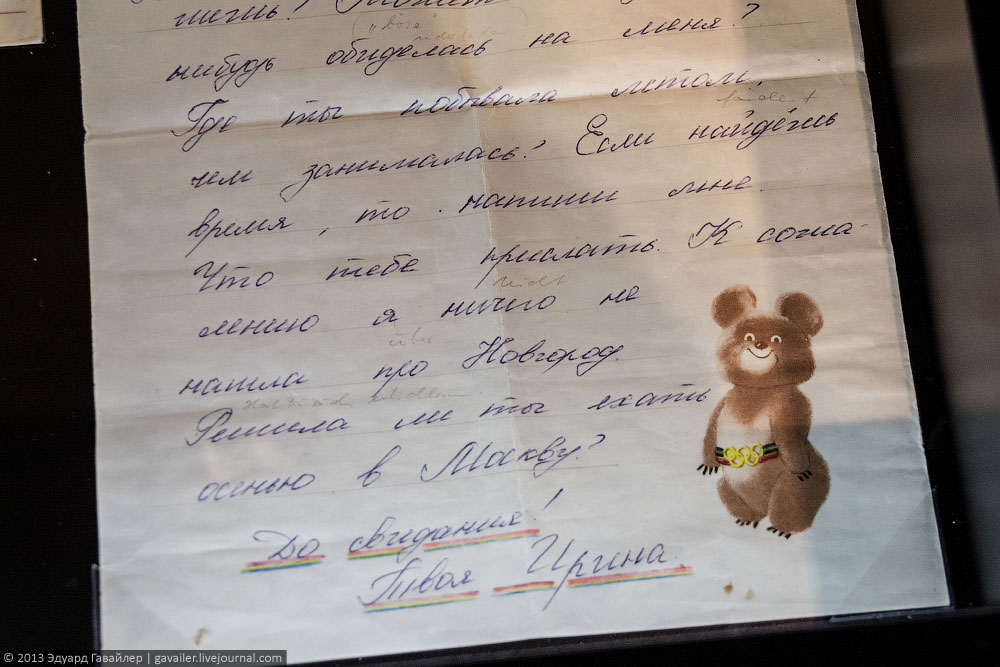 жизнь? Может
"böse"
нибудь обиделась на меня?
Где ты побывала летом,
чем занималась? Если найдёшь
время, то напиши мне.
Что тебе прислать. К сожа-
nicht
лению я ничего не
über
нашла про Новгород.
Решила ли ты ехать
осенью в Москву?
До свидания!
Твоя Ирина.
© 2013 Эдуард Гавайлер | gavailer.livejournal.com